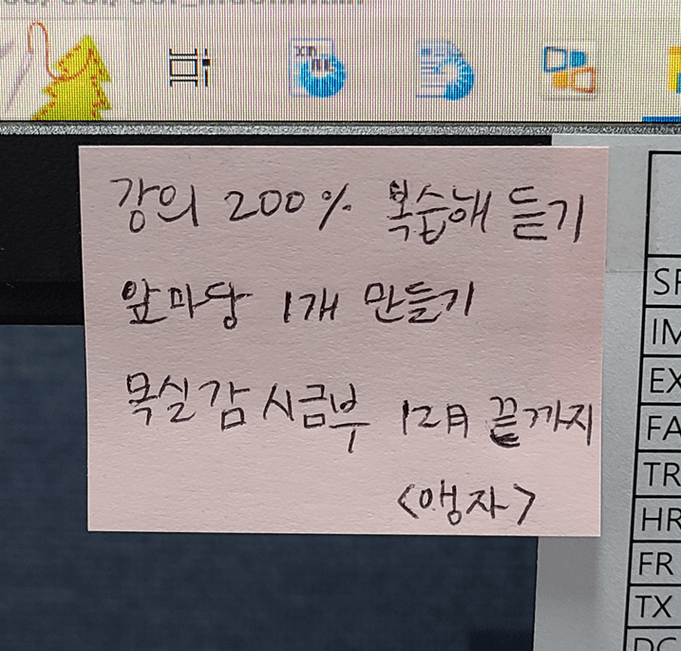 강의 200% 복습해 듣기
앞마당 1개 만들기
목실감시금부 12月 끝까지
<앵자>
IM
EX
FA
TR
HR
FR
TX